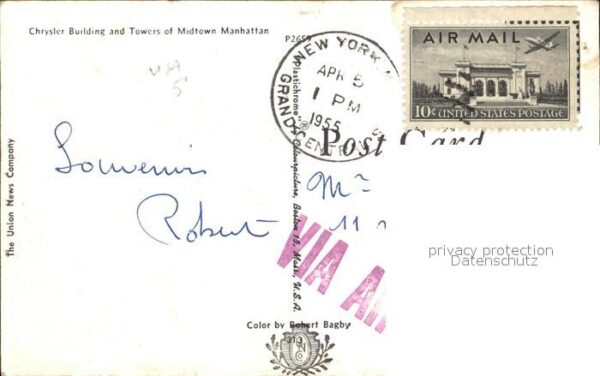 Chrysler Building and Towers of Midtown Manhattan
P2659
USA
5
The Union News Company
Souvenirs
Robert
"Plastichrome"® by Colourpicture, Boston 15, Mass., U.S.A.
NEW YORK
APR 5
1 PM
1955
GRAND CENT
AIR MAIL
10¢ UNITED STATES POSTAGE
Post Card
Mr
11
VIA AI
privacy protection
Datenschutz
Color by Robert Bagby
313